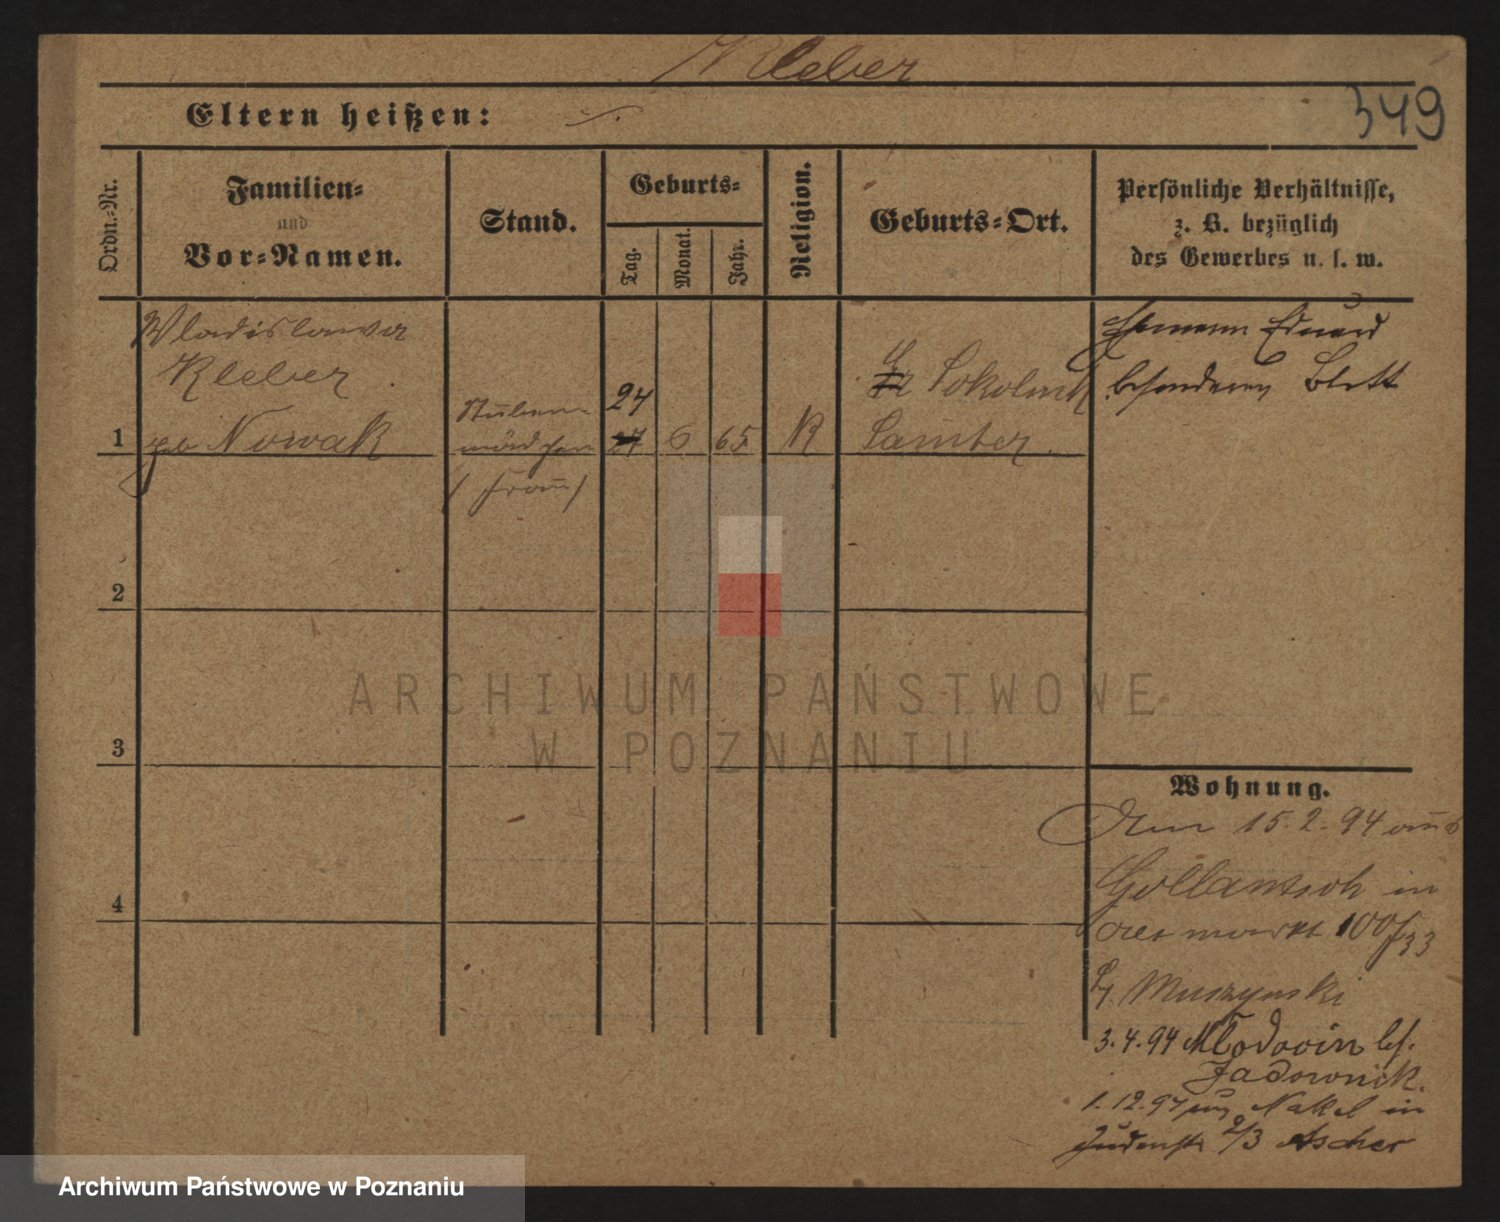 Kleber
349
Eltern heißen: ./.
Ordn.-Nr.
Familien-
und
Vor-Namen.
Stand.
Geburts-
Tag.
Monat.
Jahr.
Religion.
Geburts-Ort.
Persönliche Verhältnisse,
z. B. bezüglich
des Gewerbes u. s. w.
Wladislawa
Kleber
geb Nowak
1
Stuben-
mädchen
(Frau)
24
27
6
65
K
Gr Sokolnik
Samter
Ehemann Eduard
besonderen Blatt
2
3
4
Wohnung.
Am 15.2.94 aus
Gollantsch in
Alet markt 100/33
b/ Muszynski
3.4.94 Mlodocin bf.
Jadownik.
1.12.97 aus Nakel in
Judenstr 2/3 Ascher
ARCHIWUM PAŃSTWOWE
W POZNANIU
Archiwum Państwowe w Poznaniu